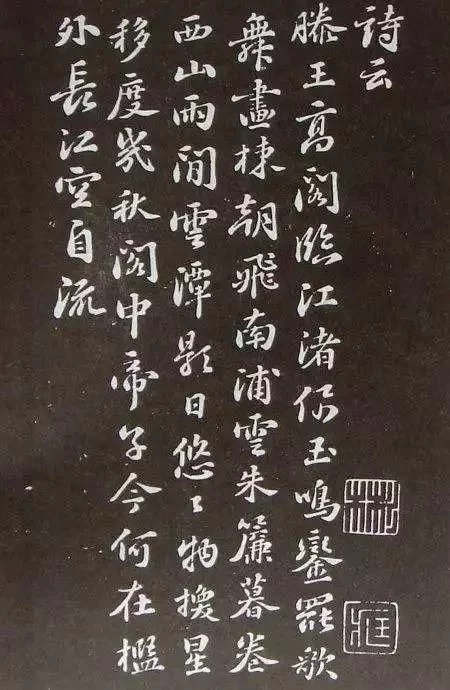 詩云
滕王高阁臨江渚佩玉鳴鑾罷歌
舞畫棟朝飛南浦雲朱簾暮卷
西山雨閒雲潭影日悠〻物換星
移度幾秋阁中帝子今何在檻
外長江空自流